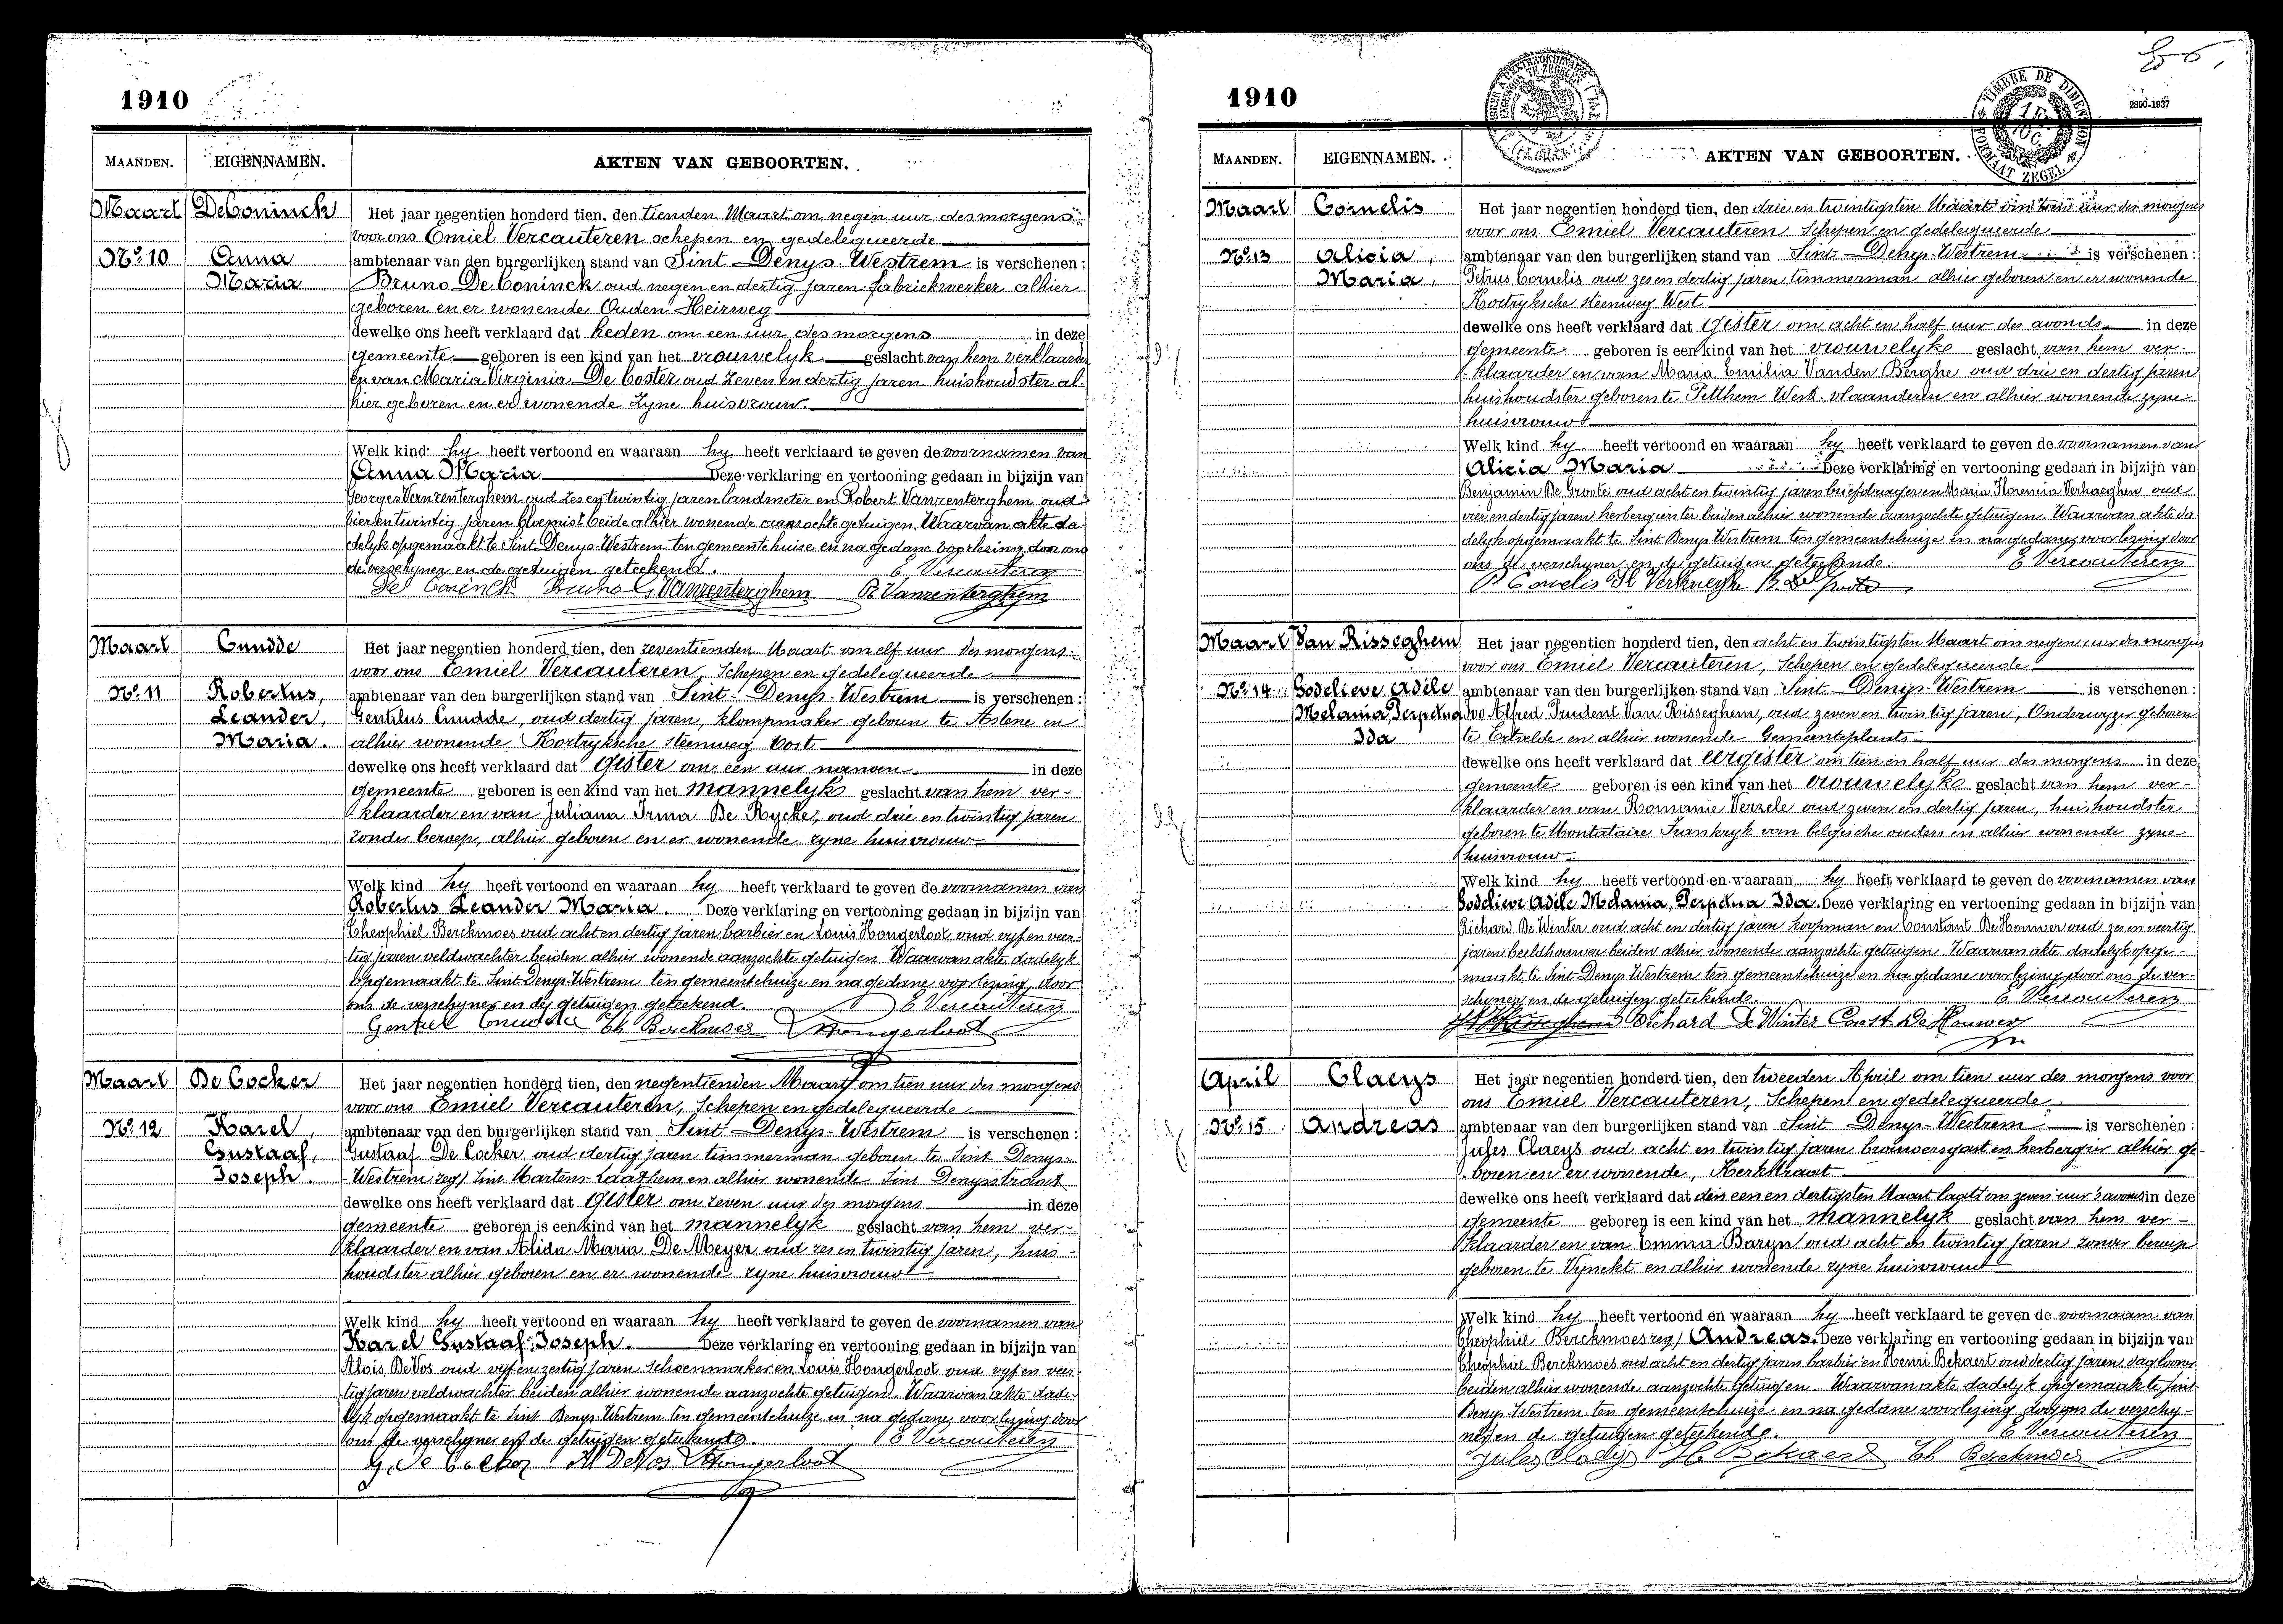 1910
MAANDEN. EIGENNAMEN. AKTEN VAN GEBOORTEN.
Maart DeConinck Het jaar negentien honderd tien, den tienden Maart om negen uur des morgens
voor ons Emiel Vercauteren schepen en gedelegueerde
No. 10 Anna ambtenaar van den burgerlijken stand van Sint Denys-Westrem is verschenen :
Maria Bruno De Coninck oud negen en dertig jaren fabriekwerker alhier
geboren en er wonende Ouden Heirweg
dewelke ons heeft verklaard dat heden om een uur des morgens in deze
gemeente geboren is een kind van het vrouwelyk geslacht van hem verklaarder
en van Maria Virginia De Coster oud zeven en dertig jaren huishoudster al-
hier geboren en er wonende zyne huisvrouw.
Welk kind hy heeft vertoond en waaraan hy heeft verklaard te geven de voornamen van
Anna Maria Deze verklaring en vertooning gedaan in bijzijn van
Georges Vanrenterghem oud zes en twintig jaren landmeter en Robert Vanrenterghem oud
vier en twintig jaren bloemist beide alhier wonende aanzochte getuigen. Waarvan akte da-
delyk opgemaakt te Sint Denys-Westrem ten gemeentehuize en na gedane voorlezing door ons
de verschyner en de getuigen geteekend. E Vercauteren
De Coninck Bruno G Vanrenterghem R Vanrenterghem
Maart Cnudde Het jaar negentien honderd tien, den zeventienden Maart om elf uur des morgens
voor ons Emiel Vercauteren, Schepen en gedelegueerde
No. 11 Robertus, ambtenaar van den burgerlijken stand van Sint-Denys-Westrem is verschenen :
Leander, Gentilus Cnudde, oud dertig jaren, klompmaker geboren te Astene en
Maria. alhier wonende Kortryksche steenweg Oost
dewelke ons heeft verklaard dat gister om een uur namen in deze
gemeente geboren is een kind van het mannelyk geslacht van hem ver-
klaarder en van Juliana Irma De Rycke, oud drie en twintig jaren
zonder beroep, alhier geboren en er wonende zyne huisvrouw
Welk kind hy heeft vertoond en waaraan hy heeft verklaard te geven de voornamen van
Robertus Leander Maria. Deze verklaring en vertooning gedaan in bijzijn van
Theophiel Berckmoes oud acht en dertig jaren barbier en Louis Hongerloot oud vyf en veer-
tig jaren veldwachter beiden alhier wonende aanzochte getuigen Waarvan akte dadelyk
opgemaakt te Sint Denys-Westrem ten gemeentehuize en na gedane voorlezing door
ons de verschyner en de getuigen geteekend. E Vercauteren
Gentiel Cnudde Th Berckmoes L Hongerloot
Maart De Cocker Het jaar negentien honderd tien, den negentienden Maart om tien uur des morgens
voor ons Emiel Vercauteren, Schepen en gedelegueerde
No. 12 Karel, ambtenaar van den burgerlijken stand van Sint-Denys-Westrem is verschenen :
Gustaaf, Gustaaf De Cocker oud dertig jaren timmerman geboren te Sint Denys-
Joseph. Westrem zeg/ Sint Martens-Laathem en alhier wonende Sint Denysstraat
dewelke ons heeft verklaard dat gister om zeven uur des morgens in deze
gemeente geboren is een kind van het mannelyk geslacht van hem ver-
klaarder en van Alida Maria De Meyer oud zes en twintig jaren, huis-
houdster alhier geboren en er wonende zyne huisvrouw
Welk kind hy heeft vertoond en waaraan hy heeft verklaard te geven de voornamen van
Karel Gustaaf Joseph. Deze verklaring en vertooning gedaan in bijzijn van
Alois DeVos oud vyf en zestig jaren schoenmaker en Louis Hongerloot oud vyf en veer-
tig jaren veldwachter beiden alhier wonende aanzochte getuigen Waarvan akte dade-
lyk opgemaakt te Sint Denys-Westrem ten gemeentehuize en na gedane voorlezing door
ons de verschyner en de getuigen geteekend. E Vercauteren
G. De Cocker Al DeVos L Hongerloot
1910
2890-1937
TIMBRE DE DIMENSION
FORMAAT ZEGEL
MAANDEN. EIGENNAMEN. AKTEN VAN GEBOORTEN.
Maart Cornelis Het jaar negentien honderd tien, den drie en twintigsten Maart om tien uur des morgens
voor ons Emiel Vercauteren Schepen en gedelegueerde
No. 13 Alicia, ambtenaar van den burgerlijken stand van Sint-Denys-Westrem is verschenen :
Maria, Petrus Cornelis oud zes en dertig jaren timmerman alhier geboren en er wonende
Kortryksche steenweg West
dewelke ons heeft verklaard dat gister om acht en half uur des avonds in deze
gemeente geboren is een kind van het vrouwelyke geslacht van hem ver-
klaarder en van Maria Emilia Vanden Berghe oud drie en dertig jaren
huishoudster geboren te Pitthem West-vlaanderen en alhier wonende zyne
huisvrouw
Welk kind hy heeft vertoond en waaraan hy heeft verklaard te geven de voornamen van
Alicia Maria Deze verklaring en vertooning gedaan in bijzijn van
Benjamin De Groote oud acht en twintig jaren briefdrager en Maria Florencia Verhaeghen oud
vier en dertig jaren herbergierster beiden alhier wonende aanzochte getuigen. Waarvan akte da-
delyk opgemaakt te Sint Denys Westrem ten gemeentehuize en na gedane voorlezing door
ons de verschyner en de getuigen geteekende. E Vercauteren
P Cornelis Fl Verhaeghe B. De Groote
Maart Van Risseghem Het jaar negentien honderd tien, den acht en twintigsten Maart om negen uur des morgens
voor ons Emiel Vercauteren, Schepen en gedelegueerde
No. 14 Godelieve Adèle ambtenaar van den burgerlijken stand van Sint-Denys-Westrem is verschenen :
Melania Perpetua Ivo Alfred Prudent Van Risseghem, oud zeven en twintig jaren, Onderwyzer geboren
Ida te Ertvelde en alhier wonende Gemeenteplaats
dewelke ons heeft verklaard dat eergister om tien en half uur des morgens in deze
gemeente geboren is een kind van het vrouwelyk geslacht van hem ver-
klaarder en van Romanie Verzele oud zeven en dertig jaren, huishoudster
geboren te Montataire Frankryk van belgische ouders en alhier wonende zyne
huisvrouw
Welk kind hy heeft vertoond en waaraan hy heeft verklaard te geven de voornamen van
Godelieve Adèle Melania, Perpetua Ida. Deze verklaring en vertooning gedaan in bijzijn van
Richard De Winter oud acht en dertig jaren koopman en Constant De Houwer oud zes en veertig
jaren beeldhouwer beiden alhier wonende aanzochte getuigen. Waarvan akte dadelyk opge-
maakt te Sint-Denys Westrem ten gemeentehuize en na gedane voorlezing door ons de ver-
schyner en de getuigen geteekende. E Vercauteren
Richard De Winter Const. De Houwer
April Claeys Het jaar negentien honderd tien, den tweeden April om tien uur des morgens voor
ons Emiel Vercauteren, Schepen en gedelegueerde
No. 15 Andreas ambtenaar van den burgerlijken stand van Sint Denys-Westrem is verschenen :
Jules Claeys oud acht en twintig jaren brouwersgast en herbergier alhier ge-
boren en er wonende, Kerkstraat
dewelke ons heeft verklaard dat den een en dertigsten Maart laatst om zeven uur 's avonds in deze
gemeente geboren is een kind van het mannelyk geslacht van hem ver-
klaarder en van Emma Baryn oud acht en twintig jaren zonder beroep
geboren te Vynckt en alhier wonende zyne huisvrouw
Welk kind hy heeft vertoond en waaraan hy heeft verklaard te geven de voornaam van
Theophiel Berckmoes zeg/ Andreas. Deze verklaring en vertooning gedaan in bijzijn van
Theophiel Berckmoes oud acht en dertig jaren barbier en Henri Bekaert oud dertig jaren daglooner
beiden alhier wonende aanzochte getuigen Waarvan akte dadelyk opgemaakt te Sint
Denys-Westrem ten gemeentehuize en na gedane voorlezing door ons de verschy-
ner en de getuigen geteekende. E Vercauteren
Jules Claeys H Bekaert Th Berckmoes